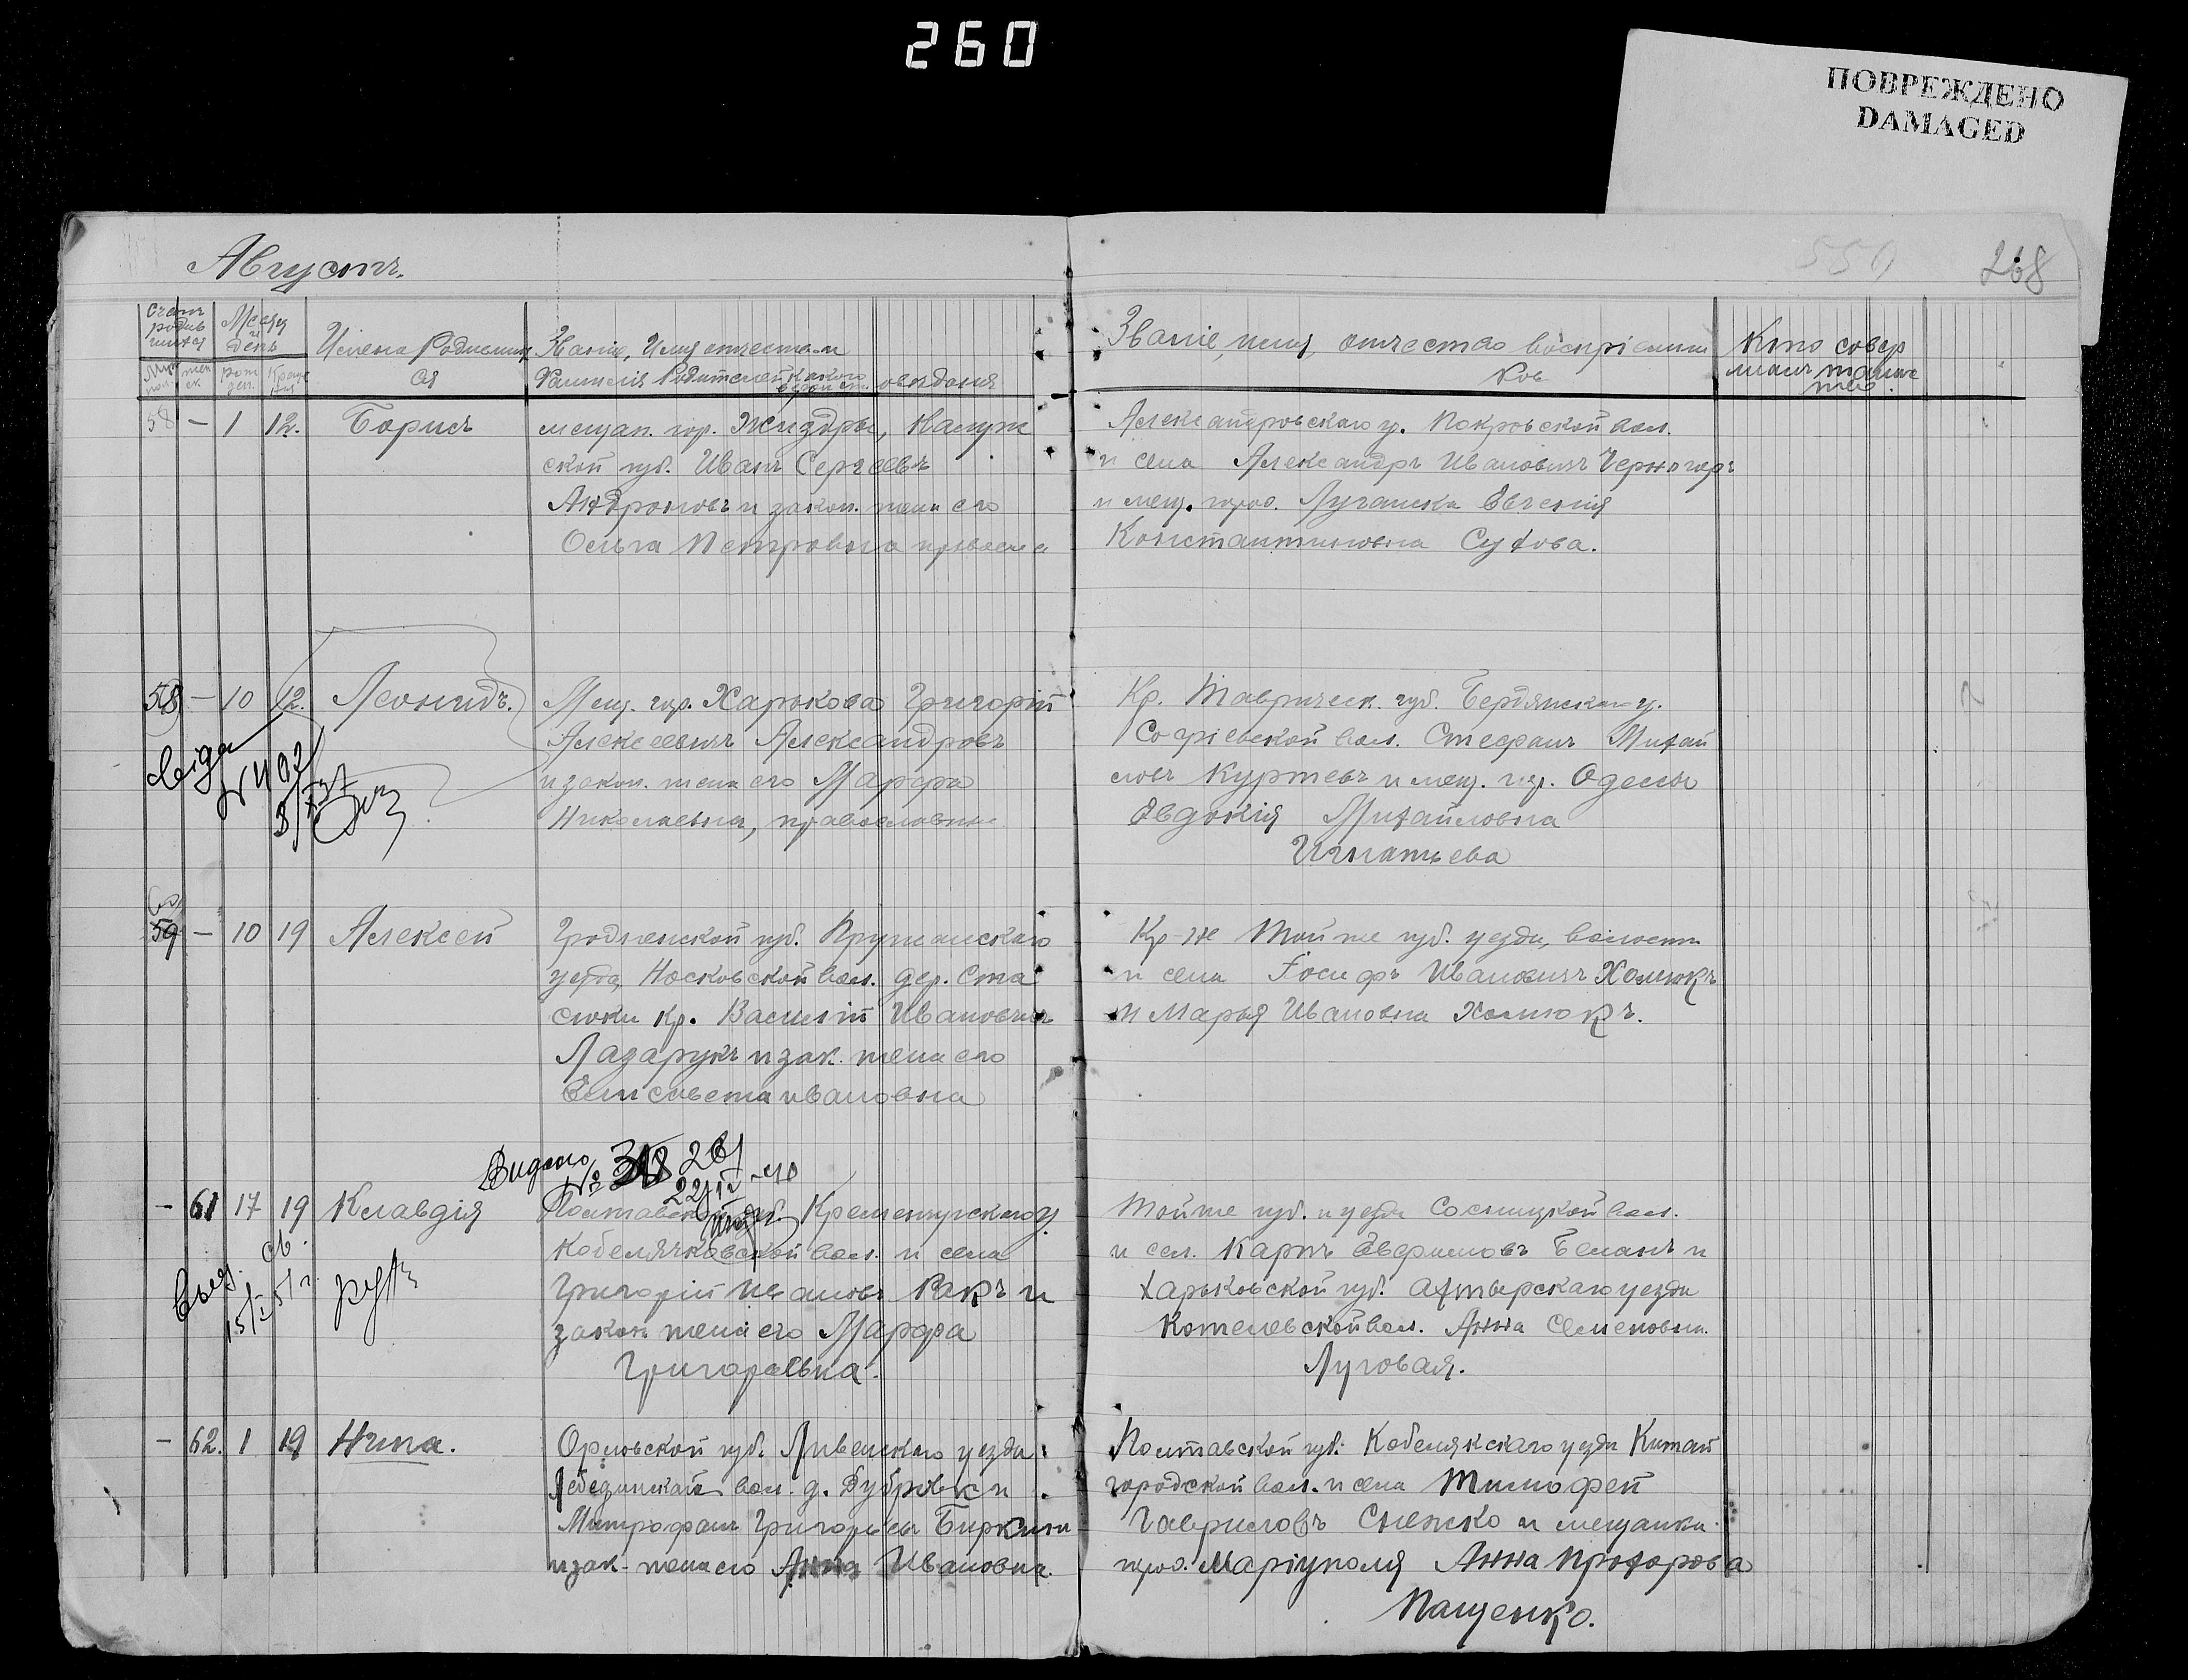 260
ПОВРЕЖДЕНО
DAMAGED
Августъ.
559
268
Счетъ родив шихся
Месяц и день
Имена Родивших ся
Званіе, Имя отчество и
Фамилія Родителей какого вероисп. оведанія
Званіе, имя, отчество воспріемни
ков
Кто совер
шалъ таинс
тво.
58 — 1 12. Борисъ
мещан. гор. Жиздры, Калуж
ской губ. Иванъ Сергеевъ
Андроновъ и закон. жена его
Ольга Петровна православн
Александровскаго у. Покровской вол.
и села Александръ Ивановичъ Черногоръ
и мещ. город. Луганска Евгенія
Константиновна Сухова.
58 — 10 12. Леонидъ.
Мещ. гор. Харькова Григорій
Алексеевичъ Александровъ
и закон. жена его Марфа
Николаевна, православные
Кр. Таврическ. губ. Бердянскаго у.
Стефанъ Михай
ловъ Куртевъ и мещ. гор. Одессы
Евдокія Михайловна
Игнатьева
59 — 10 19 Алексей
Гродненской губ. Пружанскаго
уезда, Носковской вол. дер. Ста
сюки кр. Василій Ивановичъ
Лазарукъ и зак. жена его
Елисавета Ивановна
Кр-не Той же губ. уезда, волости
и села Іосифъ Ивановичъ Хомюкъ
и Марья Ивановна Хомюкъ.
Видано № 318 261
22/IV-40
— 61 17 19 Клавдія
Полтавской губ. Кременчугскаго у.
Кобелячковской вол. и села
Григорій Ивановъ Ракъ и
закон жена его Марфа
Григорьевна.
Той же губ. и уезда вол.
и сел. Карпъ Евфимовъ Беланъ и
Харьковской губ. Ахтырскаго уезда
Котелевской вол. Анна Семеновна.
Луговая.
— 62. 1 19 Нина.
Орловской губ. Ливенскаго уезда
вол. д. Дубровки
Митрофанъ Григорьевъ Биркинъ
и зак. жена его Анна Ивановна.
Полтавской губ. Кобелякскаго уезда Китай
городской вол. и села Тимофей
Гавриловъ Снежко и мещанка
город. Маріуполя Анна Прохорова
Пащенко.